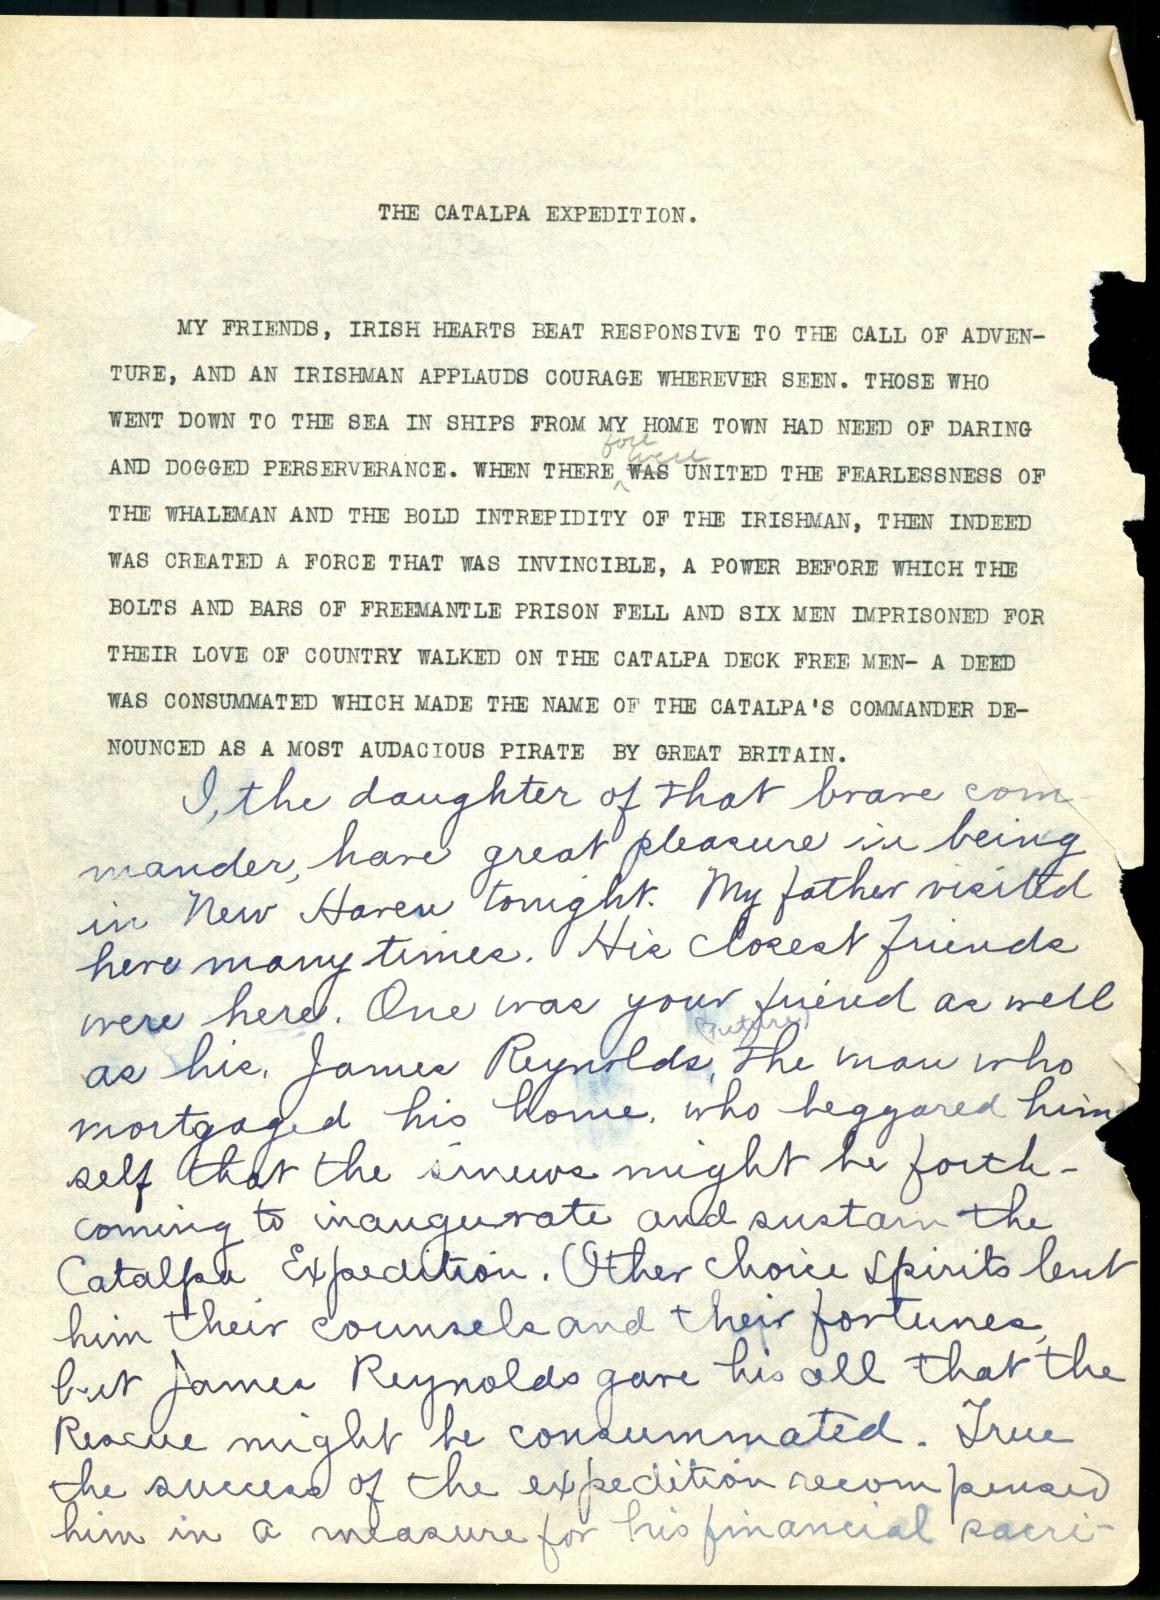 THE CATALPA EXPEDITION.
MY FRIENDS, IRISH HEARTS BEAT RESPONSIVE TO THE CALL OF ADVEN-
TURE, AND AN IRISHMAN APPLAUDS COURAGE WHEREVER SEEN. THOSE WHO
WENT DOWN TO THE SEA IN SHIPS FROM MY HOME TOWN HAD NEED OF DARING
were
AND DOGGED PERSERVERANCE. WHEN THERE WAS UNITED THE FEARLESSNESS OF
THE WHALEMAN AND THE BOLD INTREPIDITY OF THE IRISHMAN, THEN INDEED
WAS CREATED A FORCE THAT WAS INVINCIBLE, A POWER BEFORE WHICH THE
BOLTS AND BARS OF FREEMANTLE PRISON FELL AND SIX MEN IMPRISONED FOR
THEIR LOVE OF COUNTRY WALKED ON THE CATALPA DECK FREE MEN- A DEED
WAS CONSUMMATED WHICH MADE THE NAME OF THE CATALPA'S COMMANDER DE-
NOUNCED AS A MOST AUDACIOUS PIRATE BY GREAT BRITAIN.
I, the daughter of that brave com-
mander, have great pleasure in being
in New Haven tonight. My father visited
here many times. His closest friends
were here. One was your friend as well
as his. James Reynolds, the man who
mortgaged his home, who beggared him
self that the sinews might be forth-
coming to inaugurate and sustain the
Catalpa Expedition. Other choice spirits lent
him their counsels and their fortunes,
but James Reynolds gave his all that the
Rescue might be consummated. True
the success of the expedition recompensed
him in a measure for his financial sacri-